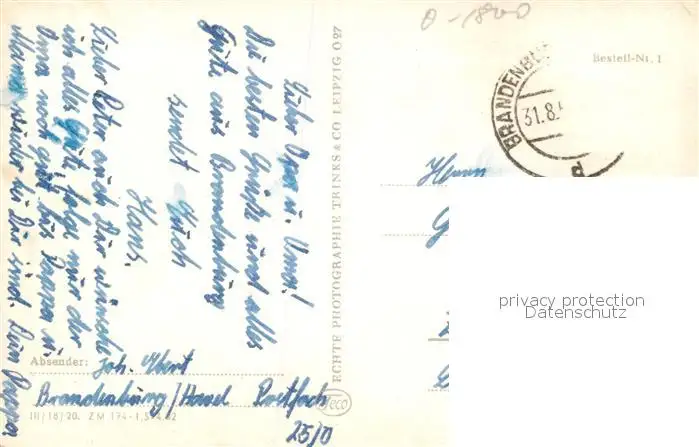 Lieber Opa u. Uma!
Die besten Grüße und alles
Gute aus Brandenburg
sendet Euch
Hans.
Lieber Peter auch Dir wünsche
ich alles Gute, folge nur der
Oma noch gut bis Pappa u.
Mama wieder bei Dir sind. Dein Pappa
Absender: Joh. Ebert
Brandenburg/Havel Postfach
25/0
III/18/20. ZM 174-1,5
ECHTE PHOTOGRAPHIE TRINKS & CO LEIPZIG O 27
Bestell-Nr. 1
BRANDENBU
31.8.
d
Herrn
G
privacy protection
Datenschutz